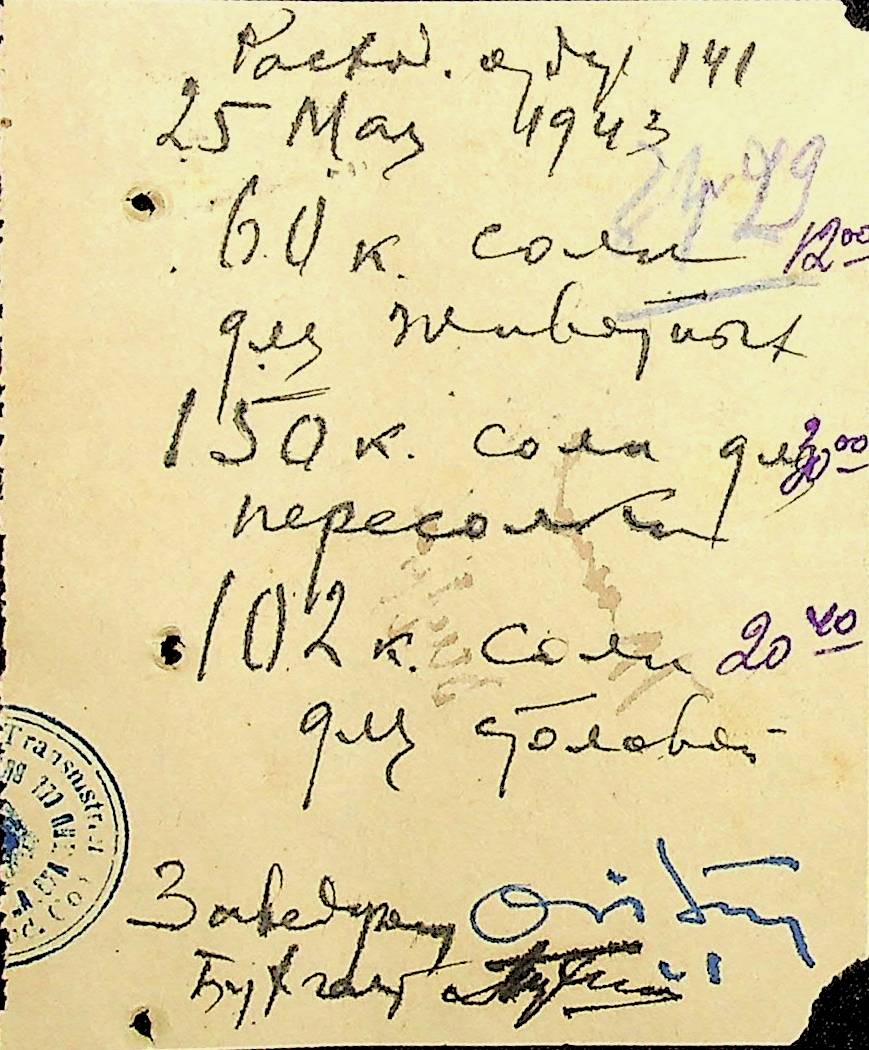 Расход. 141
25 Мая 1943
2429
60 к. соли 12 00
для животных
150 к. соли для 30 00
пересолки
102 к. соли 20 40
для столовой
Transnistr
Заведующ
Бухгалт